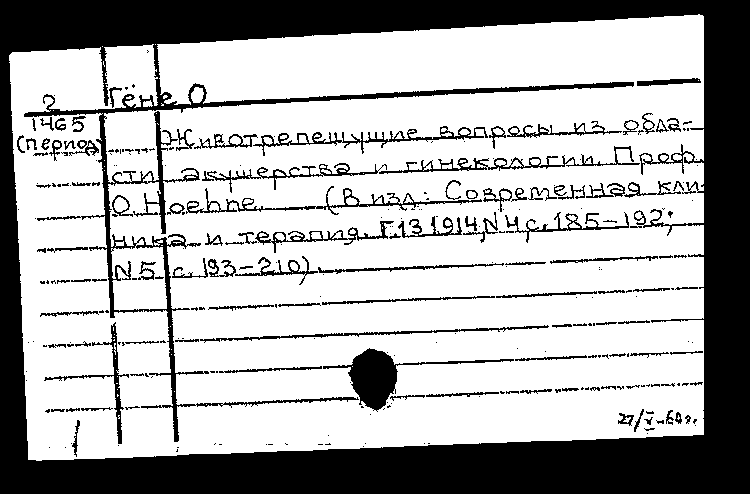 2 Гёне, О
1465
(период) Животрепещущие вопросы из обла-
сти акушерства и гинекологии. Проф.
O. Hoehne. (В изд: Современная кли-
ника и терапия. Г.13 1914, N 4 с. 185-192;
N 5 с. 193-210).
27/V-60 г.